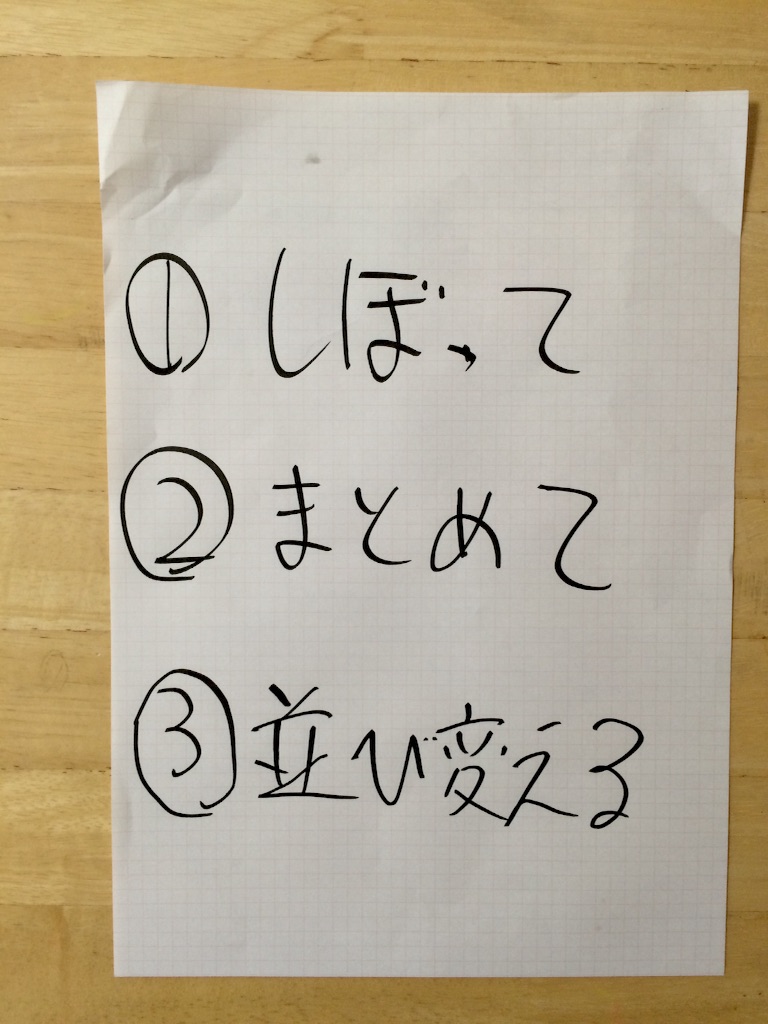 ① しぼって
② まとめて
③ 並び変える